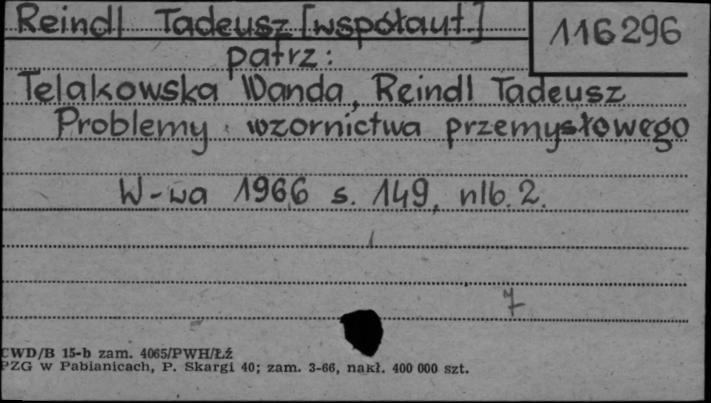 Reindl Tadeusz [współaut.]
116296
patrz:
Telakowska Wanda, Reindl Tadeusz
Problemy wzornictwa przemysłowego
W-wa 1966 s. 149, nlb. 2.
7
CWD/B 15-b zam. 4065/PWH/Łź
PZG w Pabianicach, P. Skargi 40; zam. 3-66, nakł. 400 000 szt.